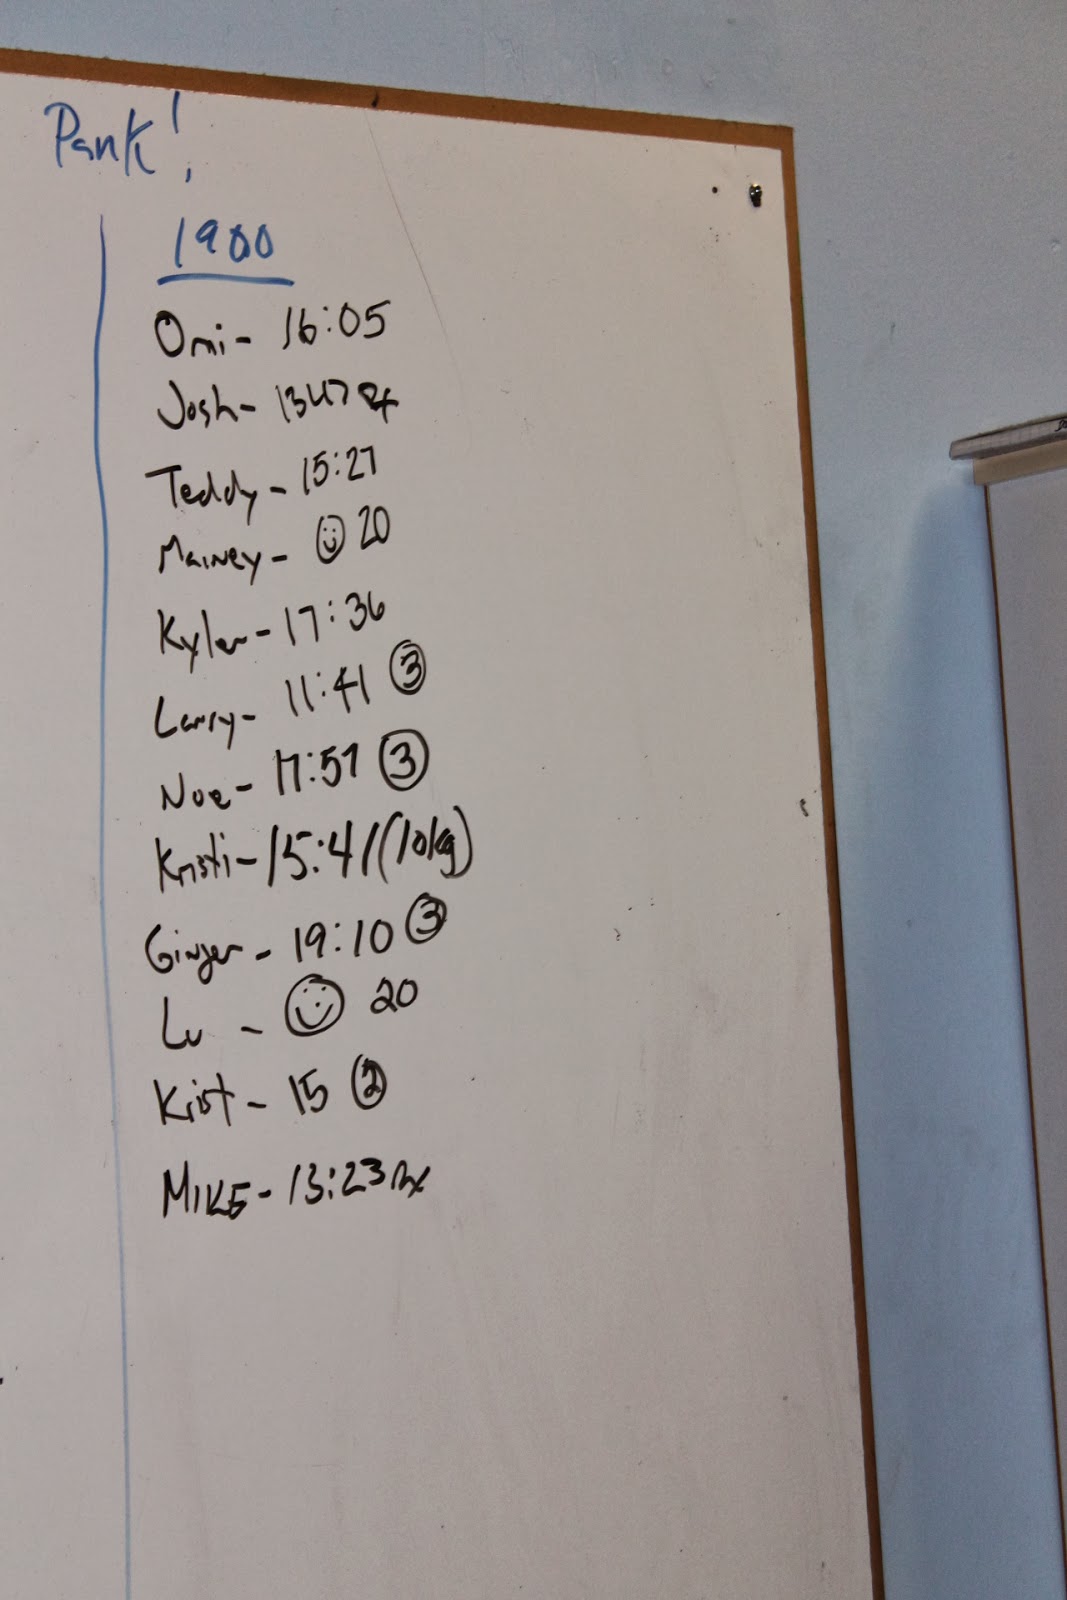 Pank!
1900
Omi- 16:05
Josh- 1347 Rx
Teddy- 15:27
Mainey- ☺ 20
Kyler- 17:36
Larry- 11:41 ③
Noe- 17:57 ③
Kristi- 15:41 (10kg)
Ginger- 19:10 ③
Lu - ☺ 20
Krist- 15 ②
MIKE- 13:23 Rx